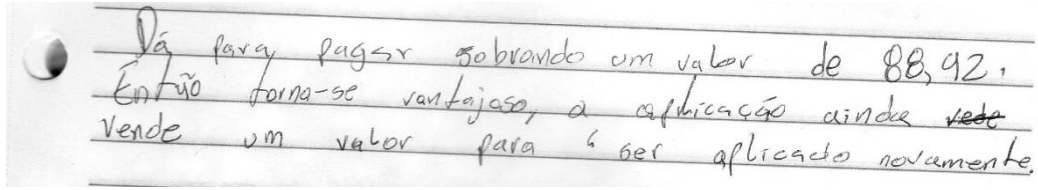 Dá para pagar sobrando um valor de 88,92.
Então torna-se vantajoso, a aplicação ainda vede
vende um valor para ser aplicado novamente.